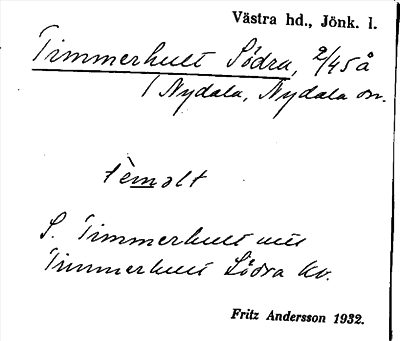 Västra hd., Jönk. l.
Timmerhult Södra, 2/45 å
Nydala, Nydala sn.
tèmalt
S. Timmerhult
Timmerhult Södra kv.
Fritz Andersson 1932.